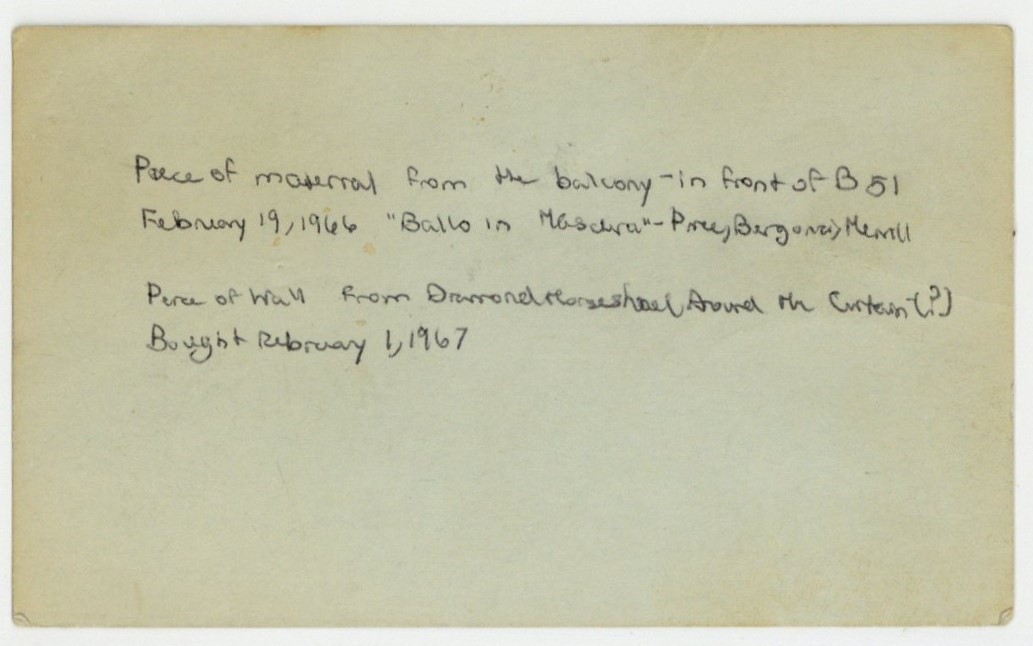 Piece of material from the balcony - in front of B 51
February 19, 1966 "Ballo in Maschera" - Price, Bergonzi, Merrill
Piece of Wall from Diamond Horseshoe, Around the Curtain (?)
Bought February 1, 1967